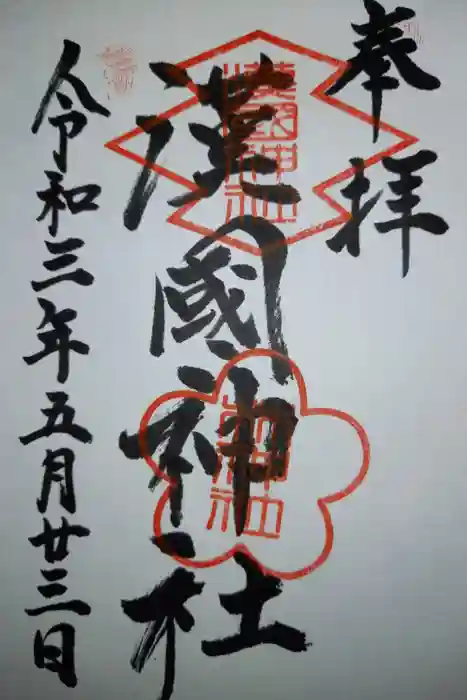 奉拝
漢國神社
令和三年五月廿三日
漢國神社